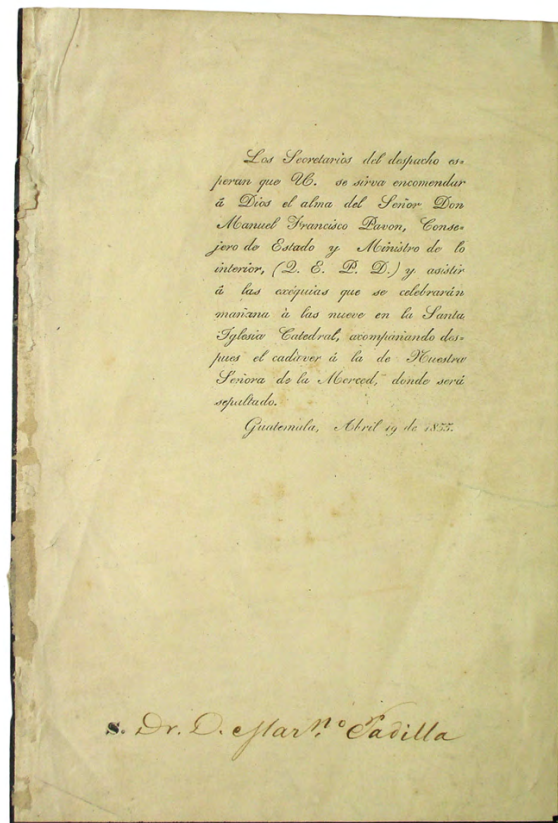 Los Secretarios del despacho es-
peran que U. se sirva encomendar
á Dios el alma del Señor Don
Manuel Francisco Pavon, Conse-
jero de Estado y Ministro de lo
interior, (Q. E. P. D.) y asistir
á las exéquias que se celebrarán
mañana á las nueve en la Santa
Iglesia Catedral, acompañando des-
pues el cadáver á la de Nuestra
Señora de la Merced, donde será
sepultado.
Guatemala, Abril 19 de 1855.
S. Dr. D. Marn.º Padilla